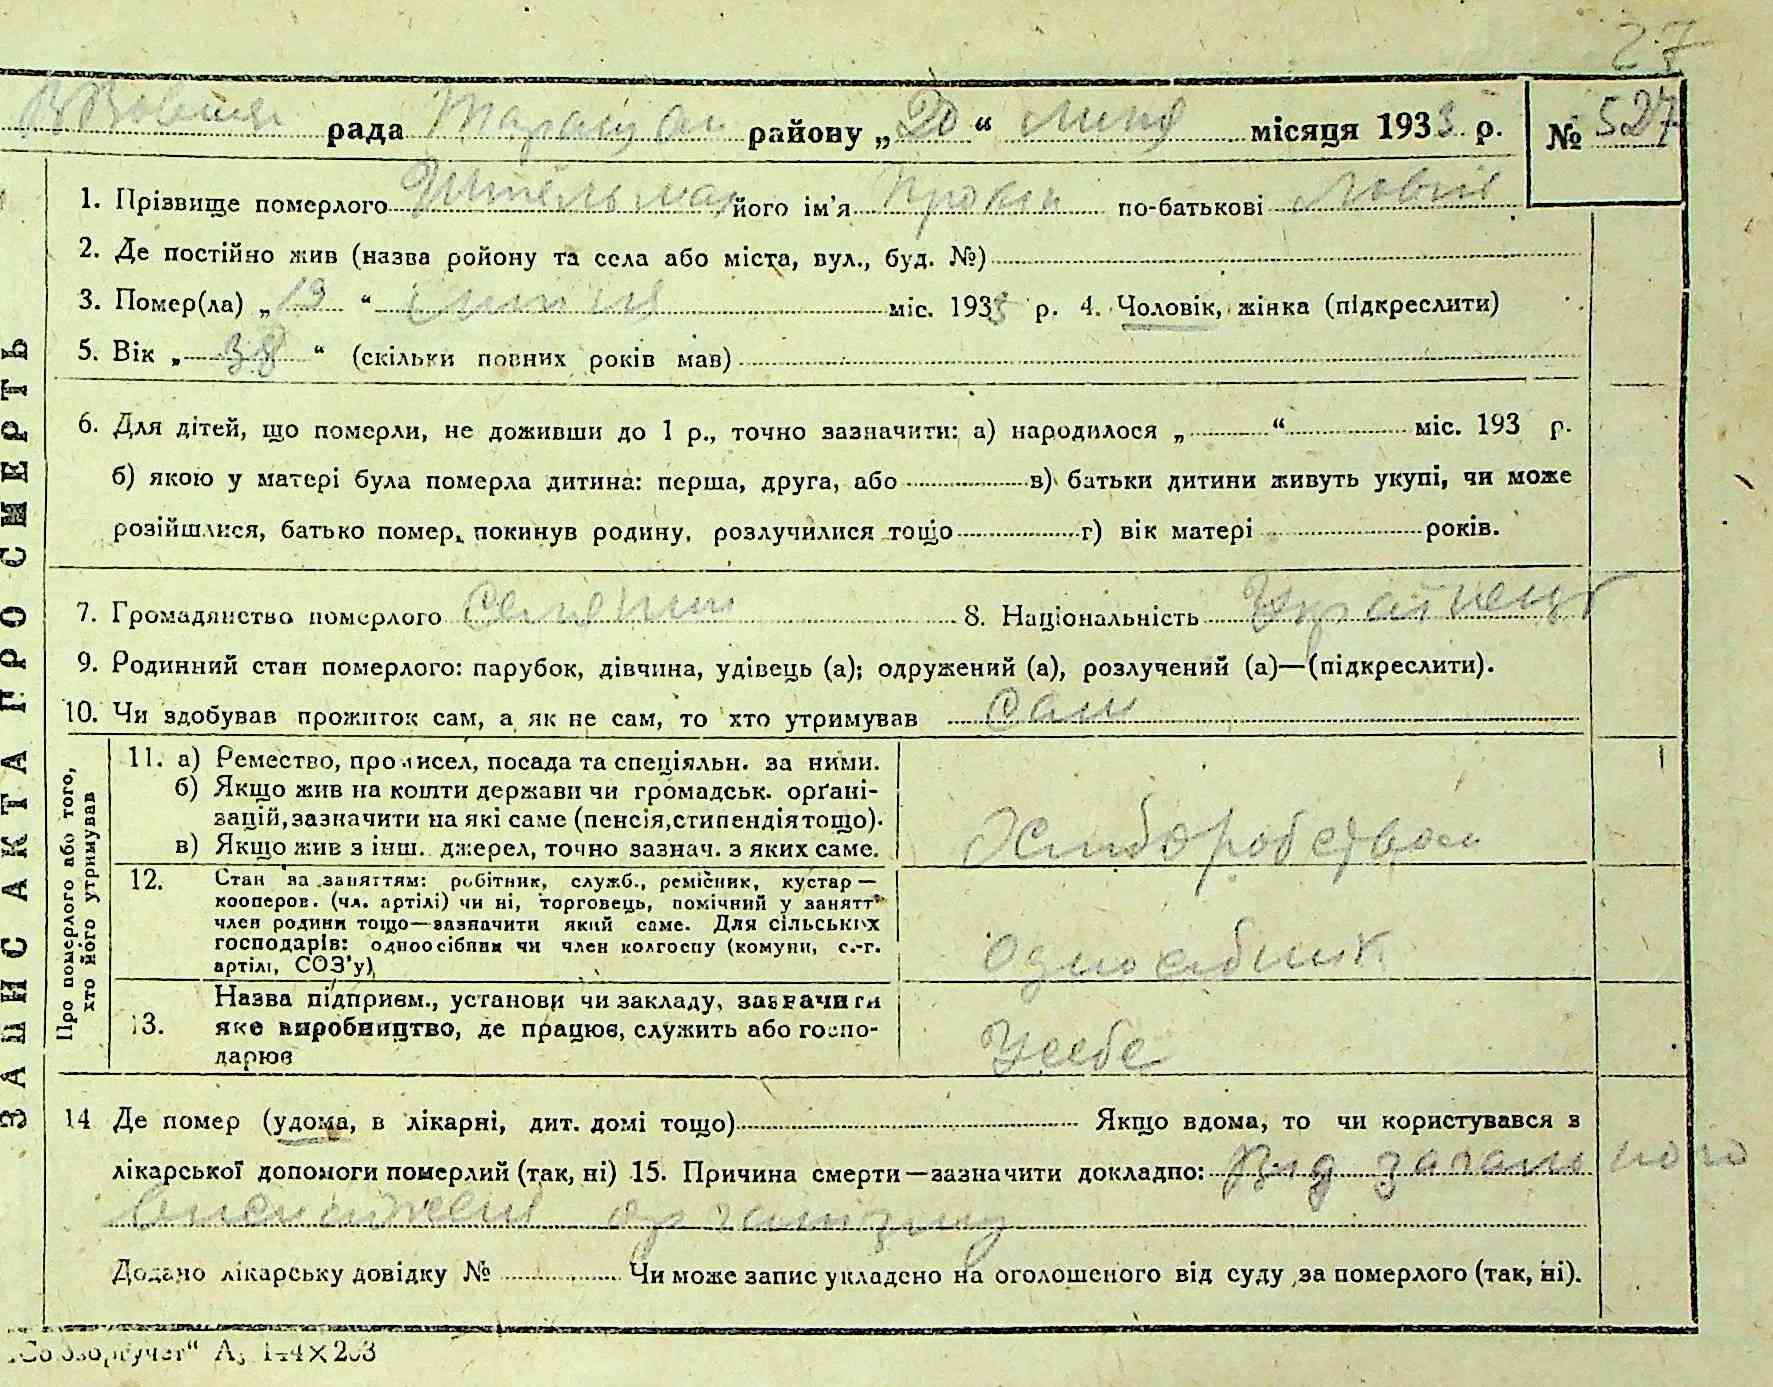 27
рада Таращан району „20“ липня місяця 1933 р. № 527
1. Прізвище померлого його ім'я Прокіп по-батькові
2. Де постійно жив (назва ройону та села або міста, вул., буд. №)
3. Помер(ла) „19“ липня міс. 1933 р. 4. Чоловік, жінка (підкреслити)
5. Вік „38“ (скільки повних років мав)
6. Для дітей, що померли, не доживши до 1 р., точно зазначити: а) народилося „ “ міс. 193 р.
б) якою у матері була померла дитина: перша, друга, або в) батьки дитини живуть укупі, чи може
розійшлися, батько помер, покинув родину, розлучилися тощо г) вік матері років.
7. Громадянство померлого 8. Національність Українець
9. Родинний стан померлого: парубок, дівчина, удівець (а); одружений (а), розлучений (а)—(підкреслити).
10. Чи здобував прожиток сам, а як не сам, то хто утримував сам
ЗАПИС АКТА ПРО СМЕРТЬ
Про померлого або того,
хто його утримував
11. а) Ремество, промисел, посада та спеціяльн. за ними.
б) Якщо жив на кошти держави чи громадськ. орґані-
зацій, зазначити на які саме (пенсія, стипендія тощо).
в) Якщо жив з інш. джерел, точно зазнач. з яких саме.
Хліборобством
12. Стан за заняттям: робітник, служб., ремісник, кустар—
кооперов. (чл. артілі) чи ні, торговець, помічний у занятт
член родини тощо—зазначити який саме. Для сільських
господарів: одноосібник чи член колгоспу (комуни, с.-г.
артілі, СОЗ'у)
одноосібник
13. Назва підприєм., установи чи закладу, зазначити
яке виробництво, де працює, служить або госпо-
дарює
Усебе
14 Де помер (удома, в лікарні, дит. домі тощо) Якщо вдома, то чи користувався з
лікарської допомоги померлий (так, ні) 15. Причина смерти—зазначити докладно: Від загального
виснаження организму
Додано лікарську довідку № Чи може запис укладено на оголошеного від суду за померлого (так, ні).
„Союзоргучет“ А₅ 144×203